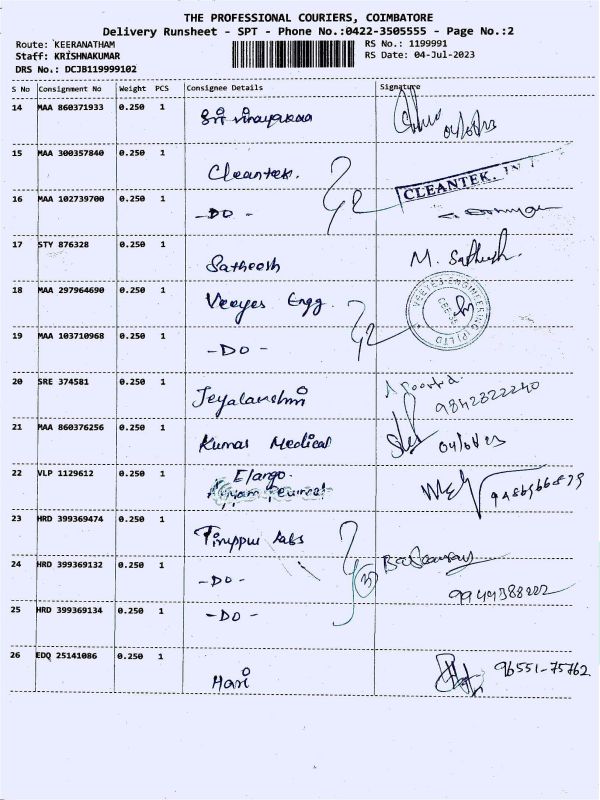 THE PROFESSIONAL COURIERS, COIMBATORE
Delivery Runsheet - SPT - Phone No.:0422-3505555 - Page No.:2
Route: KEERANATHAM RS No.: 1199991
Staff: KRISHNAKUMAR RS Date: 04-Jul-2023
DRS No.: DCJB119999102
S No Consignment No Weight PCS Consignee Details Signature
14 MAA 860371933 0.250 1 Sri Vinayakaa
15 MAA 300357840 0.250 1 Cleantek.
CLEANTEK,
16 MAA 102739700 0.250 1 -DO-
17 STY 876328 0.250 1 Satheesh M. Sathesh.
18 MAA 297964690 0.250 1 Veeyes Engg.
VEEYES ENGINEERING (P) LTD
19 MAA 103710968 0.250 1 -DO-
20 SRE 374581 0.250 1 Jeyalakshmi
9842322240
21 MAA 860376256 0.250 1 Kumar Medical
22 VLP 1129612 0.250 1 Elango.
23 HRD 399369474 0.250 1 Tiruppur Labs
24 HRD 399369132 0.250 1 -DO- 3
25 HRD 399369134 0.250 1 -DO-
26 EDQ 25141086 0.250 1 Hari 96551-75762